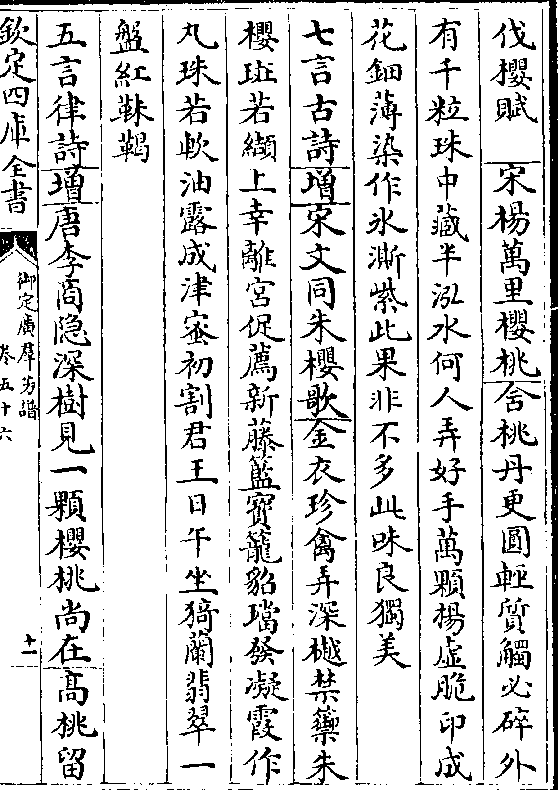 伐櫻賦　宋楊萬里櫻桃含桃丹更圓輕質觸必碎外
有千粒珠中藏半泓水何人弄好手萬顆楊虛脆印成
花鈿薄染作冰澌紫此果非不多此味良獨美
七言古詩增宋文同朱櫻歌金衣珍禽弄深樾禁籞朱
櫻斑若纈上幸離宮促薦新藤籃寶籠貂璫發凝霞作
丸珠若軟油露成津蜜初割君王日午坐猗蘭翡翠一
盤紅靺鞨
五言律詩增唐李商隱深樹見一顆櫻桃尚在高桃留
欽定四庫全書
御定廣羣芳譜
卷五十六
十一